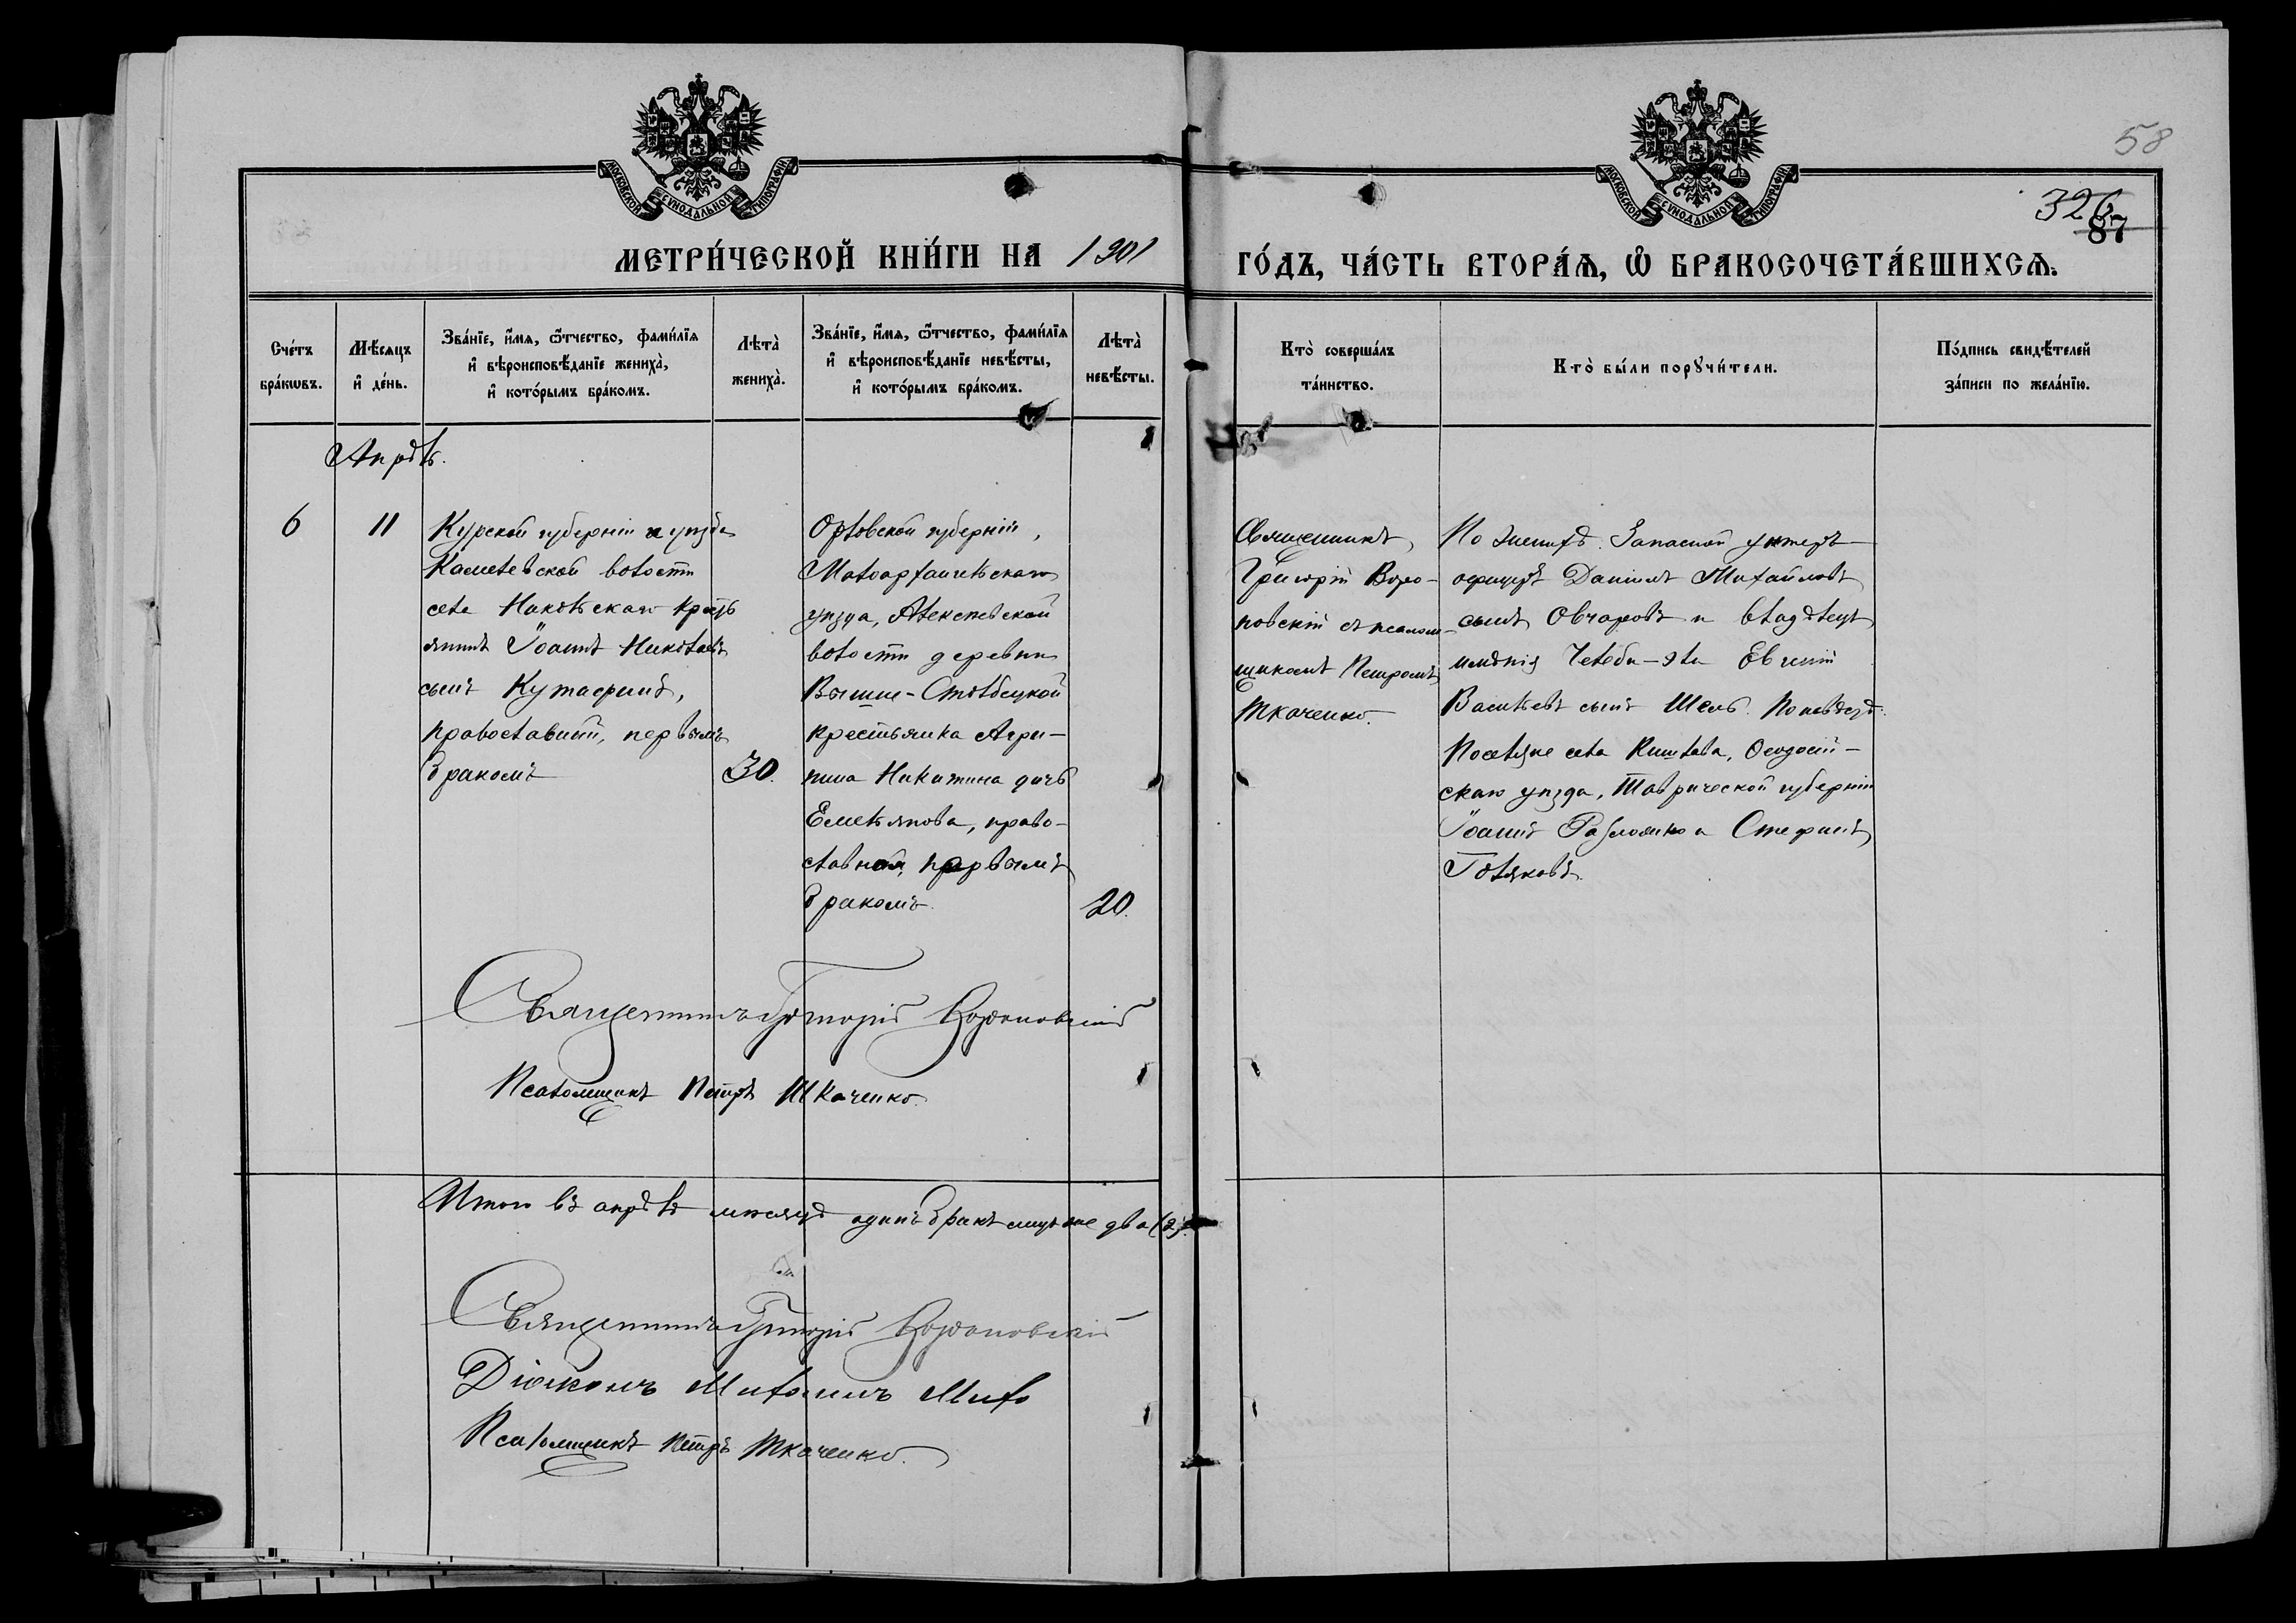 МОСКОВСКОЙ СѴНОДАЛЬНОЙ ТИПОГРАФІИ
МОСКОВСКОЙ СѴНОДАЛЬНОЙ ТИПОГРАФІИ
58
326
87
МЕТРИ́ЧЕСКОЙ КНИ́ГИ НА 1901
ГО́ДЪ, ЧА́СТЬ ВТОРА́Ѧ, Ѽ БРАКОСОЧЕТА́ВШИХСѦ.
Сче́тъ
бра́кѡвъ.
Мѣ́сяцъ
и҆ де́нь.
Зва́нїе, и҆́мѧ, ѿтчество, фами́лїѧ
и҆ вѣроисповѣ́данїе жениха̀,
и҆ кото́рымъ бра́комъ.
Лѣта̀
жениха̀.
Зва́нїе, и҆́мѧ, ѿтчество, фами́лїѧ
и҆ вѣроисповѣ́данїе невѣ́сты,
и҆ кото́рымъ бра́комъ.
Лѣта̀
невѣ́сты.
Кто̀ соверша́лъ
та́инство.
Кто̀ бы́ли порꙋчи́тели.
По́дпись свидѣ́телей
за́писи по жела́нїю.
Апрѣль.
6
11
Курской губерніи и уѣзда
волости
села Никольскаго кресть
янинъ Іоаннъ Николаевъ
сынъ
православный, первымъ
бракомъ
30.
Орловской губерніи,
Малоархангельскаго
уѣзда, Алексѣевской
волости деревни
Выше-Столбецкой
крестьянка Агри-
пина Никитина дочь
Емельянова, право-
славная, первымъ
бракомъ.
20.
Священникъ
Григорій Воро-
новскій съ псалом-
щикомъ Петромъ
Ткаченко.
По женихѣ: Запасной унтеръ-
офицеръ Даніилъ Михайловъ
сынъ Овчаровъ и владѣлецъ
имѣнія Челеби-эли Евгеній
Васильевъ сынъ По невѣстѣ:
Поселяне села Кишлава, Ѳеодосій-
скаго уѣзда, Таврической губерніи
Іоаннъ и Стефанъ
Священникъ Григорій Вороновскій
Псаломщикъ Петръ Ткаченко.
Итого въ апрѣлѣ мѣсяцѣ одинъ бракъ два (2).
Священникъ Григорій Вороновскій
Діаконъ
Псаломщикъ Петръ Ткаченко.